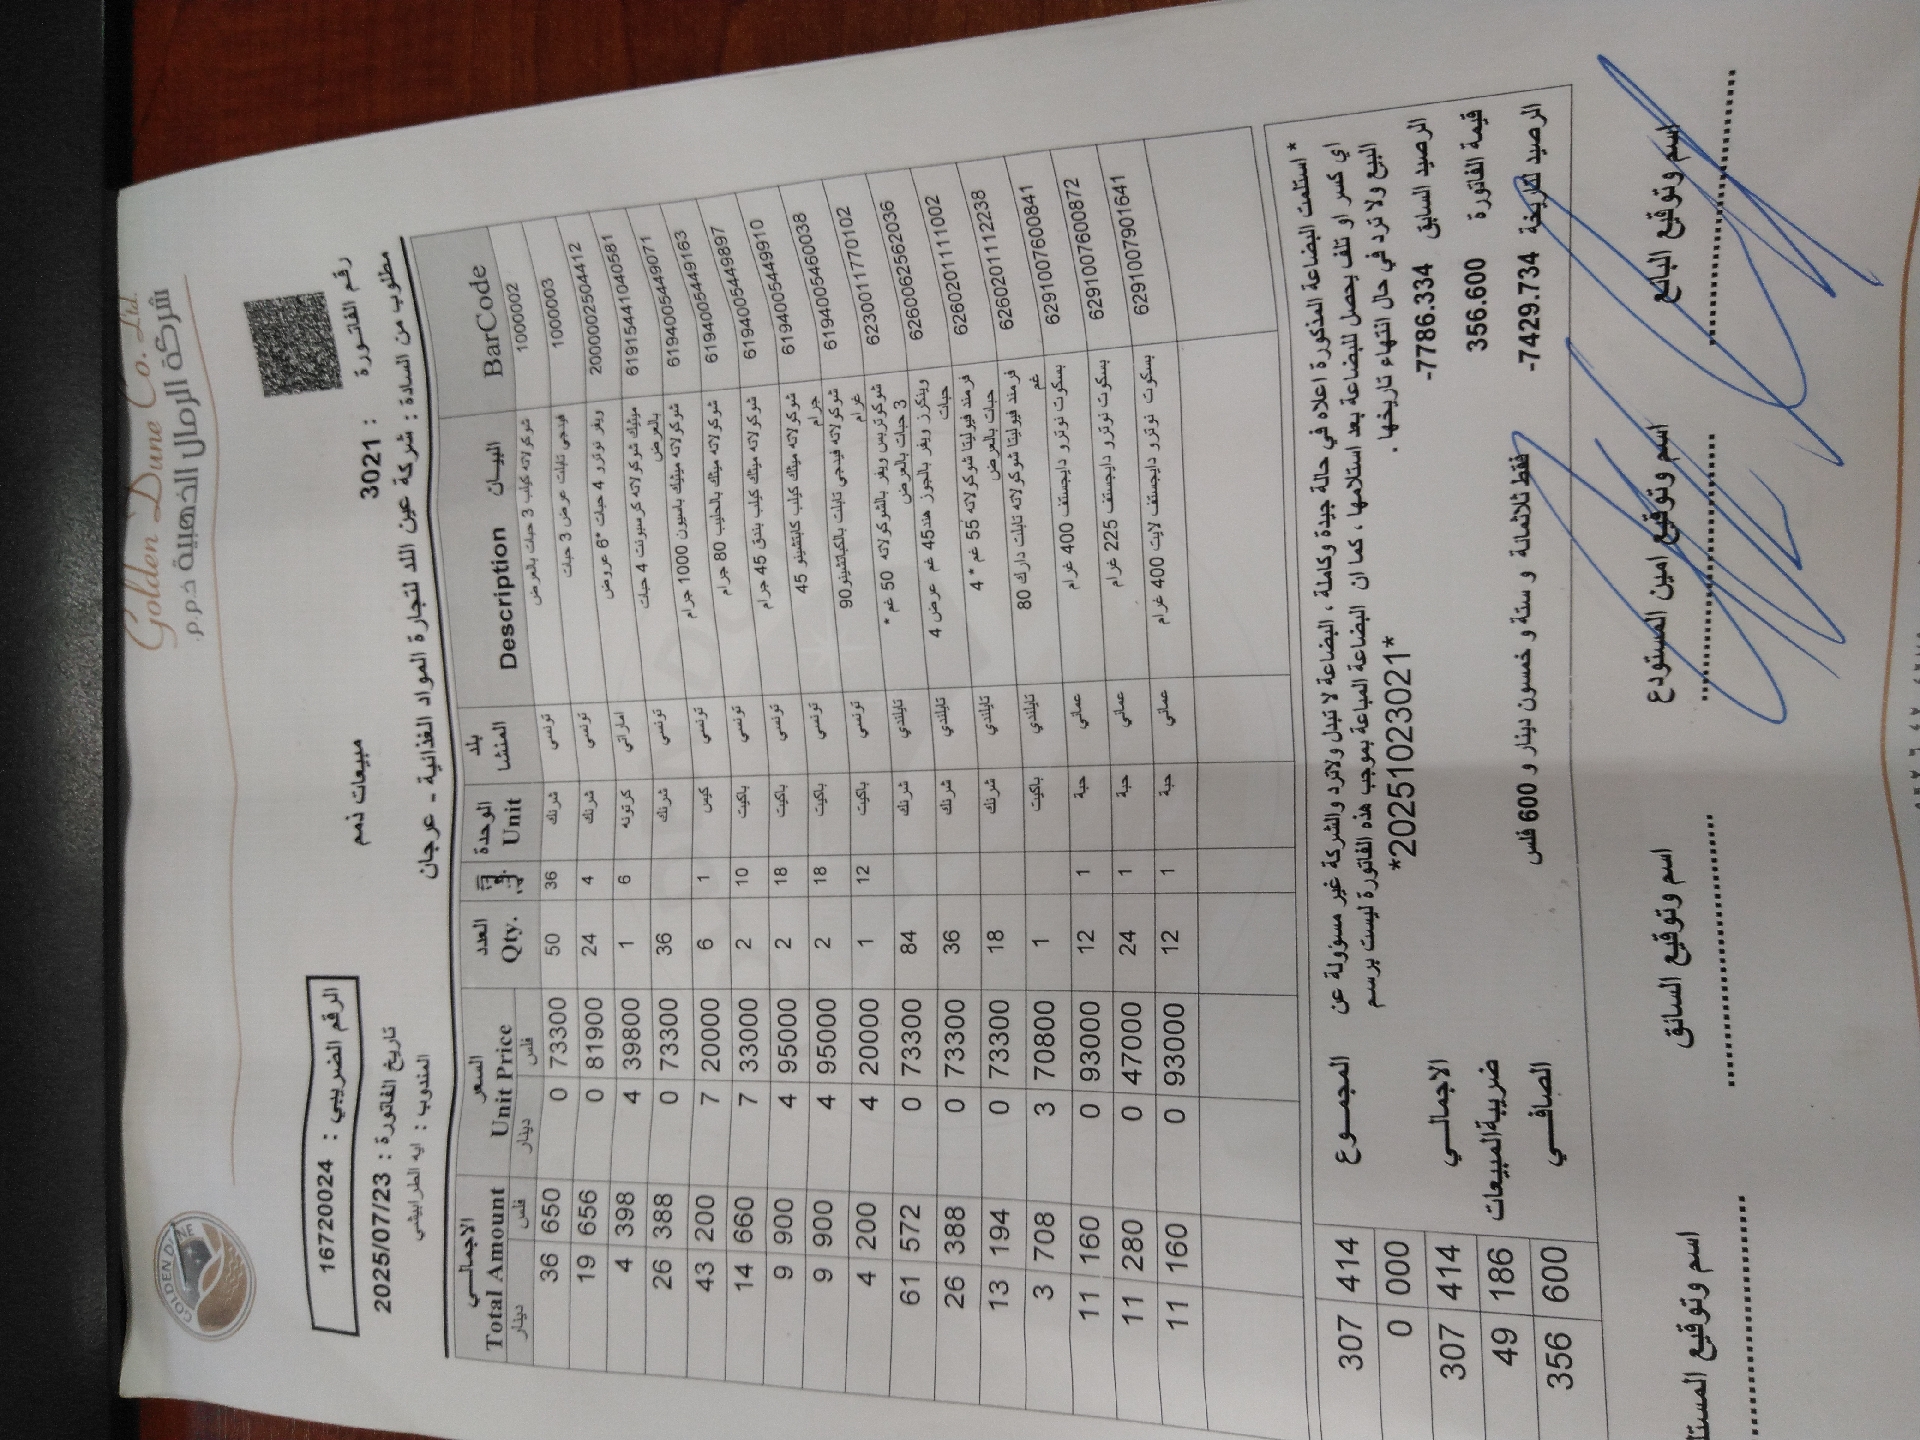 Golden Dune Co. Ltd.
شركة الرمال الذهبية ذ.م.م.
GOLDEN DUNE
الرقم الضريبي : 16720024
رقم الفاتورة : 3021
مبيعات ذمم
تاريخ الفاتورة : 2025/07/23
مطلوب من السادة : شركة عين اللد لتجارة المواد الغذائية - عرجان
المندوب : ايه الطرابيشي
BarCode البيــان Description بلد المنشا الوحدة Unit العدد Qty. السعر Unit Price دينار فلس الاجمالـي Total Amount دينار فلس
1000002 شوكولاته كيلب 3 حبات بالعرض تونسي شرنك 36 50 0 73300 36 650
1000003 فينجي تابلت عرض 3 حبات تونسي شرنك 4 24 0 81900 19 656
2000002504412 ويفر نوترو 4 حبات *6 عروض اماراتي كرتونه 6 1 4 39800 4 398
6191544104058​1 ميتيك شوكولاته كرسبونت 4 حبات بالعرض تونسي شرنك 36 0 73300 26 388
6194005449071 شوكولاته ميتيك باسيون 1000 جرام تونسي كيس 1 6 7 20000 43 200
6194005449163 شوكولاته ميتك بالحليب 80 جرام تونسي باكيت 10 2 7 33000 14 660
6194005449897 شوكولاته ميتك كيلب بندق 45 جرام تونسي باكيت 18 2 4 95000 9 900
6194005449910 شوكولاته ميتك كيلب كابتشينو 45 جرام تونسي باكيت 18 2 4 95000 9 900
6194005460038 شوكولاته فينجي تابلت بالكباتشينو90 غرام تونسي باكيت 12 1 4 20000 4 200
6230011770102 شوكوتريس ويفر بالشوكولاته 50 غم * 3 حبات بالعرض تايلندي شرنك 84 0 73300 61 572
6260062562036 وينكرز ويفر بالجوز هند45 غم عرض 4 حبات تايلندي شرنك 36 0 73300 26 388
6260201111002 فرمند فيوليتا شوكولاته 55 غم * 4 حبات بالعرض تايلندي شرنك 18 0 73300 13 194
6260201112238 فرمند فيوليتا شوكولاته تابلت دارك 80 غم تايلندي باكيت 1 3 70800 3 708
6291007600841 بسكوت نوترو دايجستف 400 غرام عماني حبة 1 12 0 93000 11 160
6291007600872 بسكوت نوترو دايجستف 225 غرام عماني حبة 1 24 0 47000 11 280
6291007901641 بسكوت نوترو دايجستف لايت 400 غرام عماني حبة 1 12 0 93000 11 160
* استلمت البضاعة المذكورة اعلاه في حالة جيدة وكاملة ، البضاعة لا تبدل ولاترد والشركة غير مسؤولة عن
اي كسر او تلف يحصل للبضاعة بعد استلامها ، كما ان البضاعة المباعة بموجب هذه الفاتورة ليست برسم
البيع ولا ترد في حال انتهاء تاريخها .
*20251023021*
المجمــوع 307 414
0 000
الاجمالـي 307 414
ضريبةالمبيعات 49 186
الصافـــي 356 600
الرصيد السابق -7786.334
قيمة الفاتورة 356.600
الرصيد لتاريخة -7429.734
فقط ثلاثمائة و ستة و خمسون دينار و 600 فلس
اسم وتوقيع البائع
اسم وتوقيع امين المستودع
اسم وتوقيع السائق
اسم وتوقيع المستلم